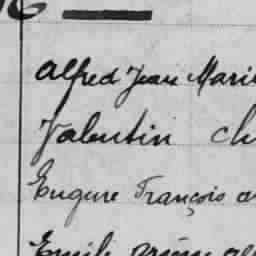 Alfred Jean Mari
Valentin ch
Eugène François a
Emile